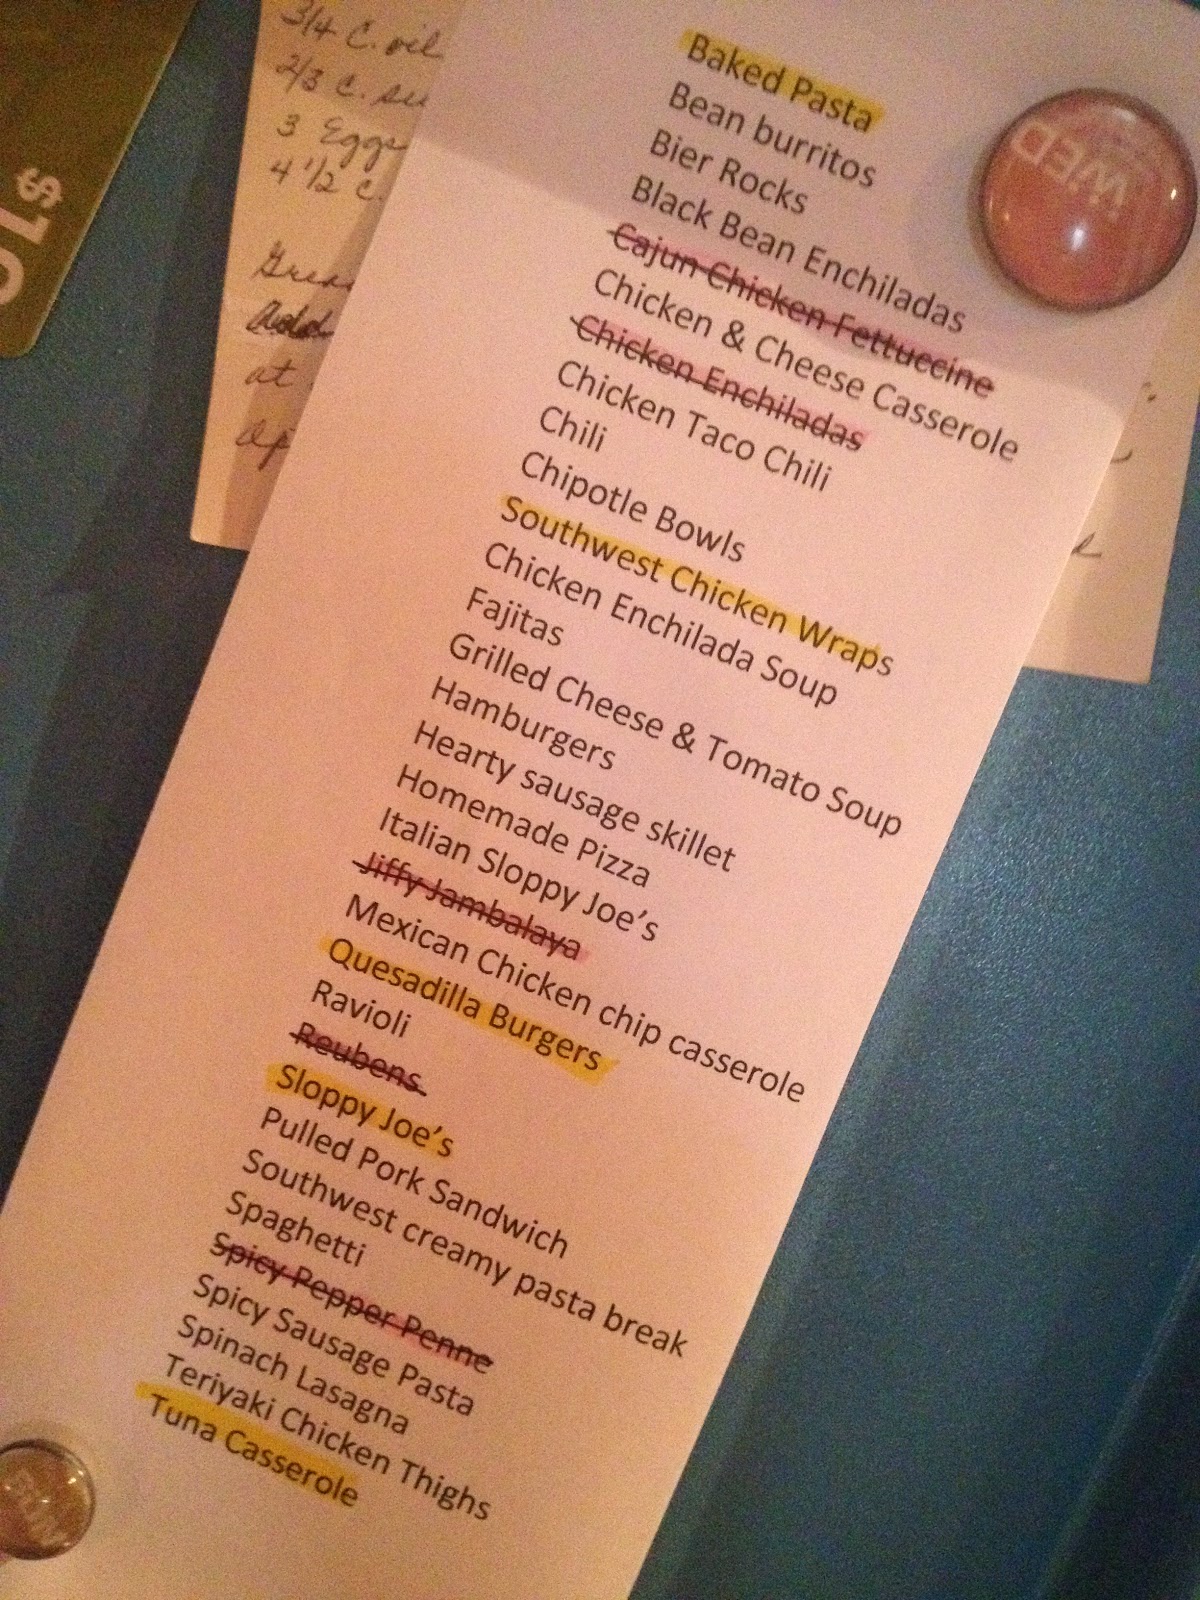 3/4 C. oil
2/3 C.
3 Eggs
4 1/2 C.
add
at
Baked Pasta
Bean burritos
Bier Rocks
Black Bean Enchiladas
Cajun Chicken Fettuccine
Chicken & Cheese Casserole
Chicken Enchiladas
Chicken Taco Chili
Chili
Chipotle Bowls
Southwest Chicken Wraps
Chicken Enchilada Soup
Fajitas
Grilled Cheese & Tomato Soup
Hamburgers
Hearty sausage skillet
Homemade Pizza
Italian Sloppy Joe's
Jiffy Jambalaya
Mexican Chicken chip casserole
Quesadilla Burgers
Ravioli
Reubens
Sloppy Joe's
Pulled Pork Sandwich
Southwest creamy pasta break
Spaghetti
Spicy Pepper Penne
Spicy Sausage Pasta
Spinach Lasagna
Teriyaki Chicken Thighs
Tuna Casserole